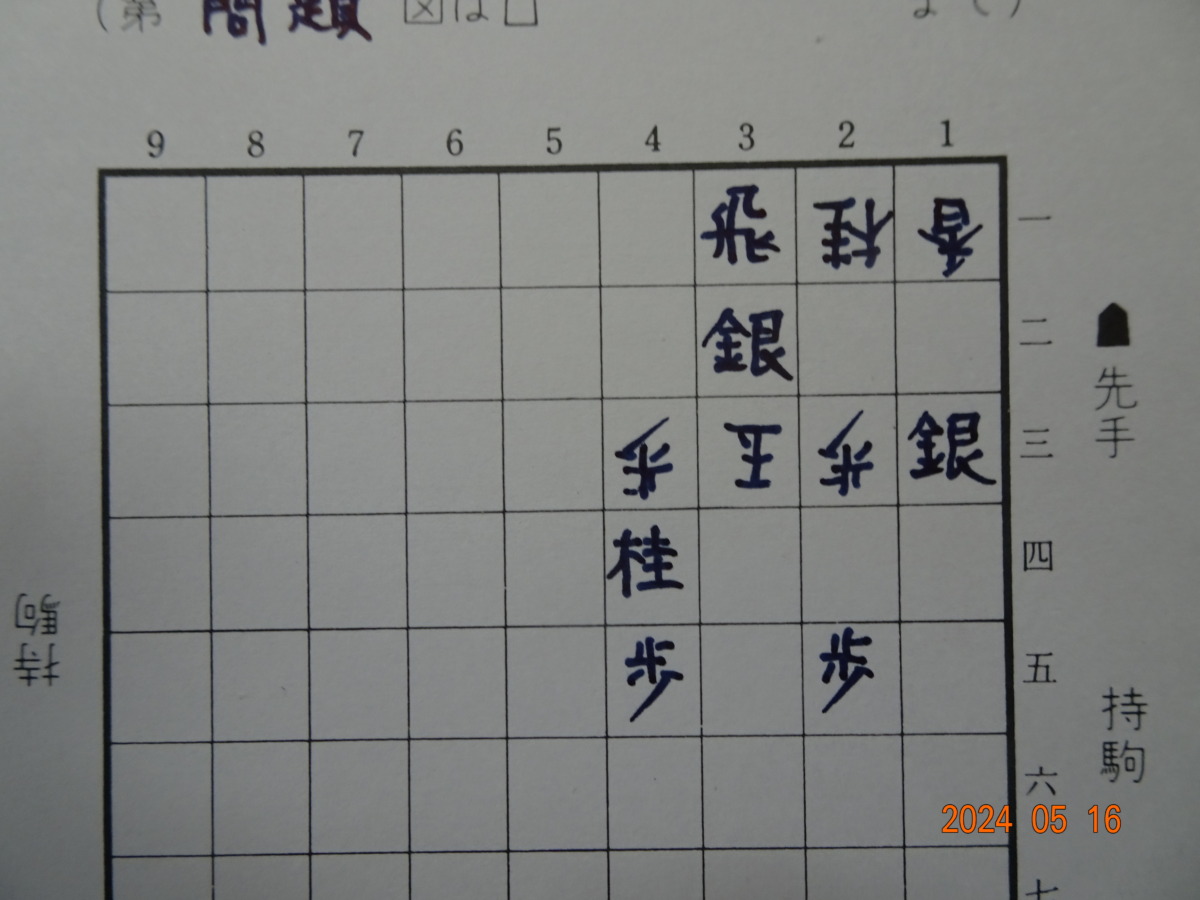 (第 問題 図は
まで)
9 8 7 6 5 4 3 2 1
飛 桂 香 一
銀 二
歩 王 歩 銀 三
桂 四
歩 歩 五
六
七
先手
持駒
持駒
2024 05 16